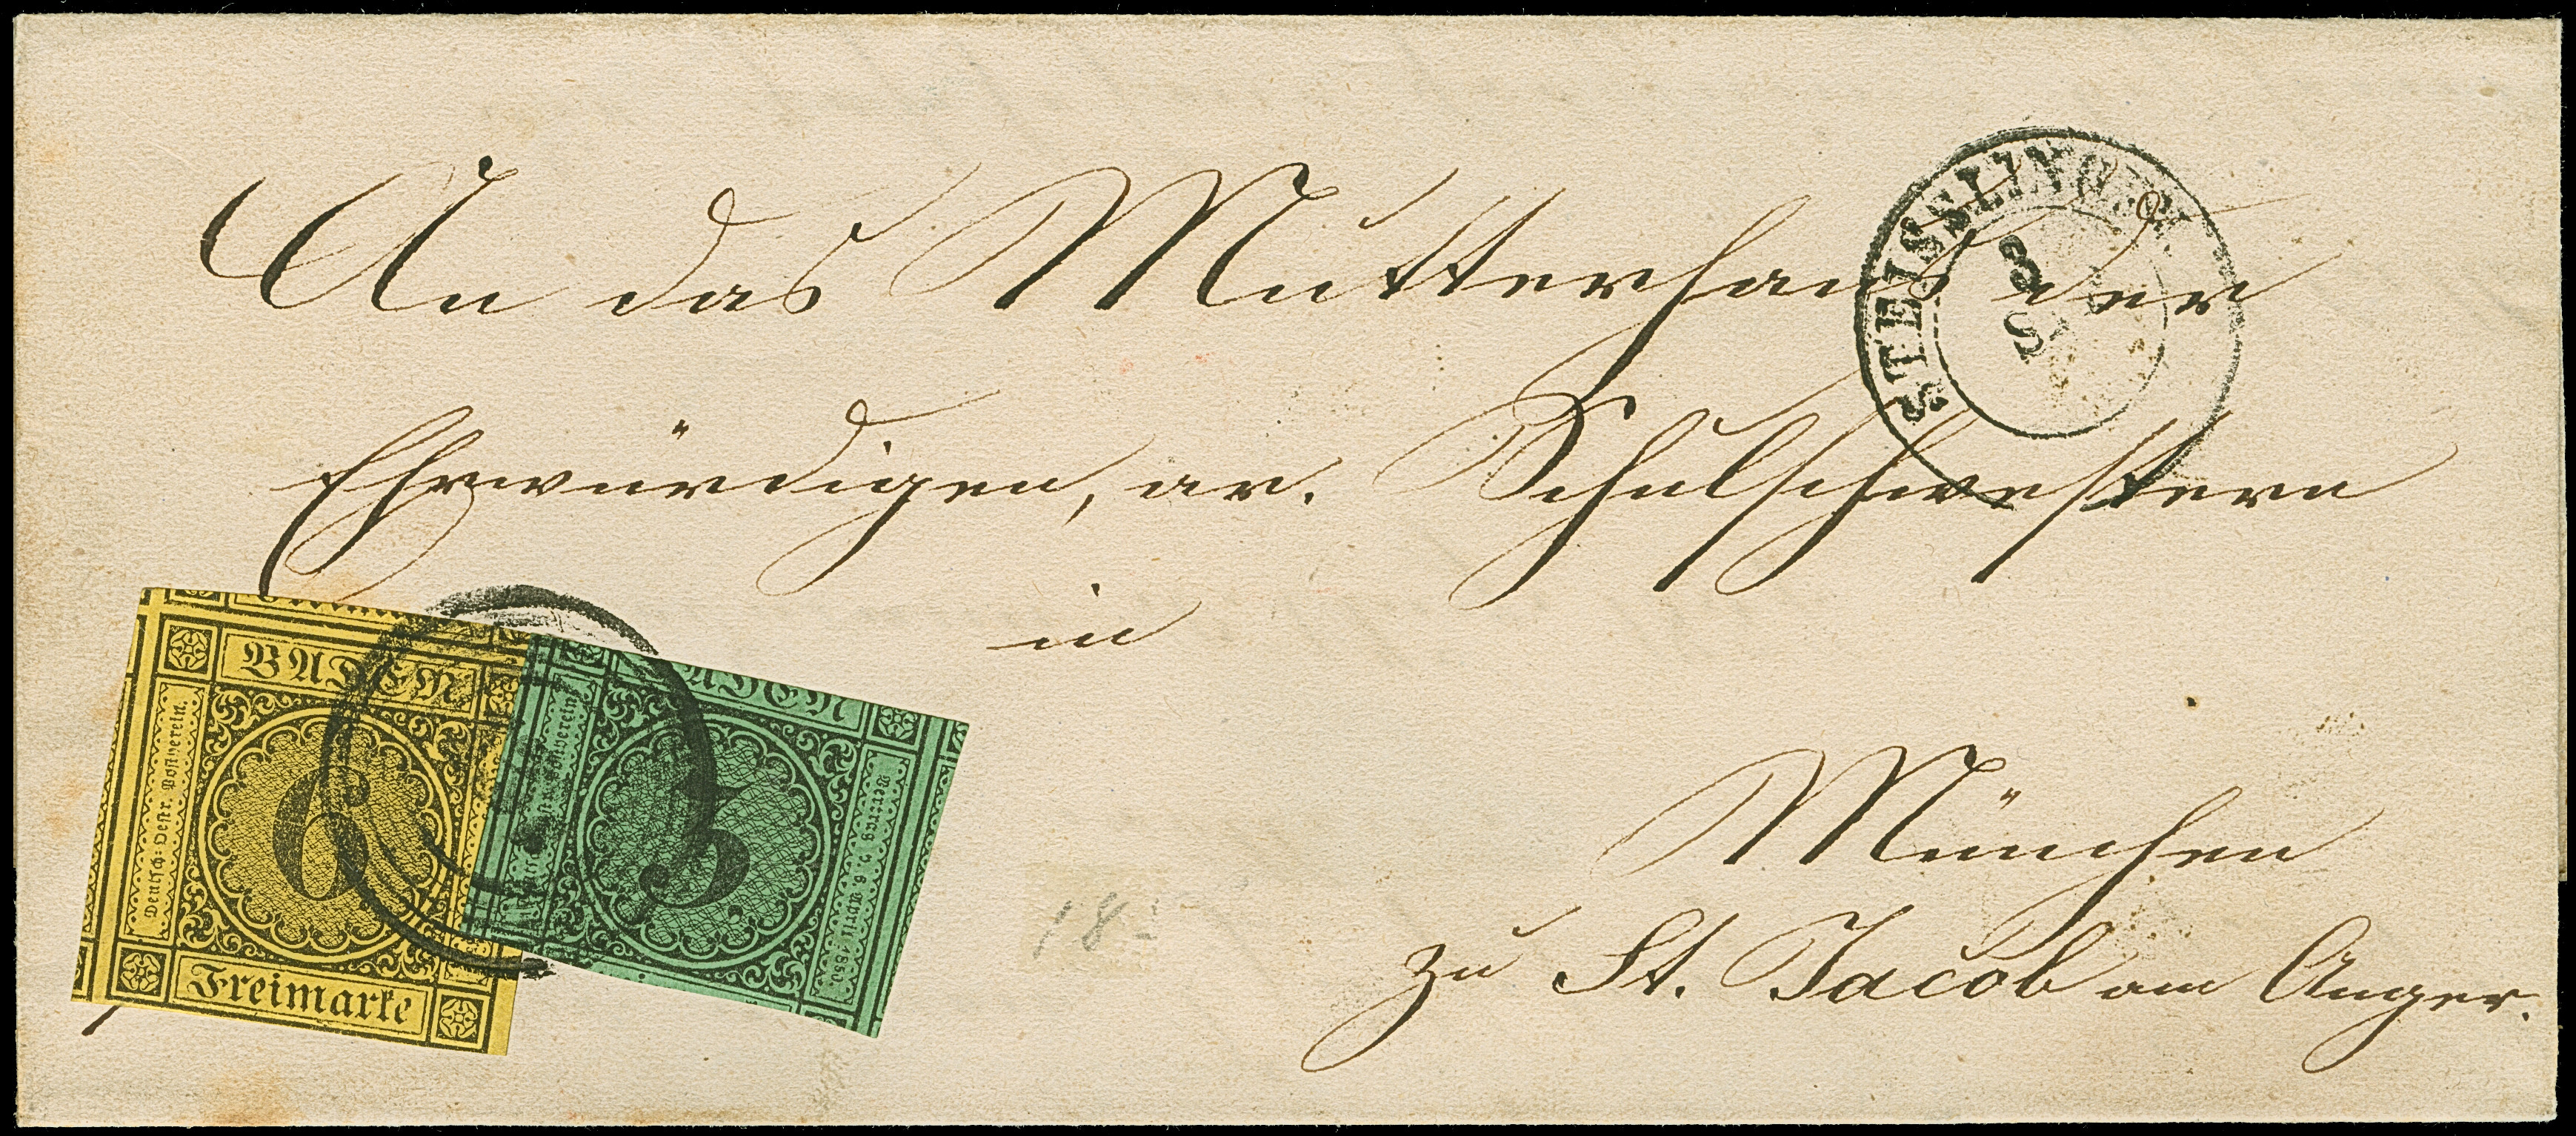 An das Mutterhaus der
Ehrwürdigen, ar. Schulschwestern
in
München
zu St. Jacob am Anger.
STEISSLINGEN
3
BADEN
Deutsch: Oestr. Postverein.
6
Freimarke
BADEN
3
Vertrag v. 6 April 1850
18